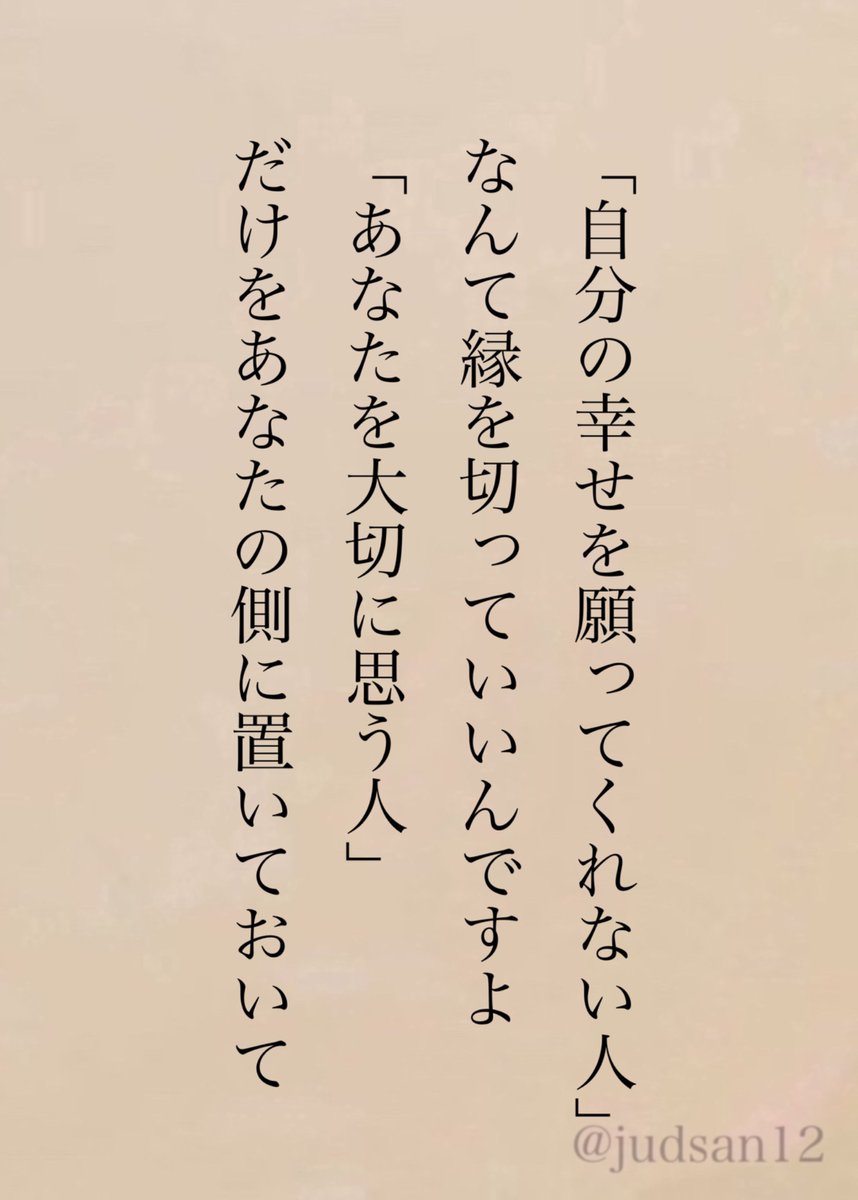 「自分の幸せを願ってくれない人」
なんて縁を切っていいんですよ
「あなたを大切に思う人」
だけをあなたの側に置いておいて
@judsan12